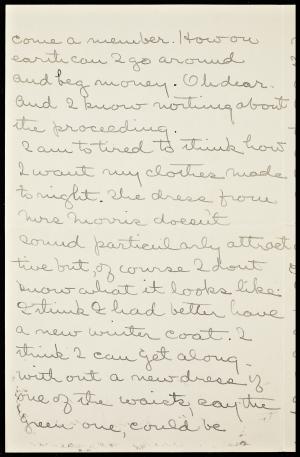 come a member. How on
earth can I go around
and beg money. Oh dear.
And I know nothing about
the proceeding.
I am to tired to think how
I want my clothes made
to night. The dress from
Mrs Morris doesn't
sound particularly attract
tive but, of course I dont
know what it looks like.
I think I had better have
a new winter coat. I
think I can get along
with out a new dress if
one of the waists, say the
green one, could be